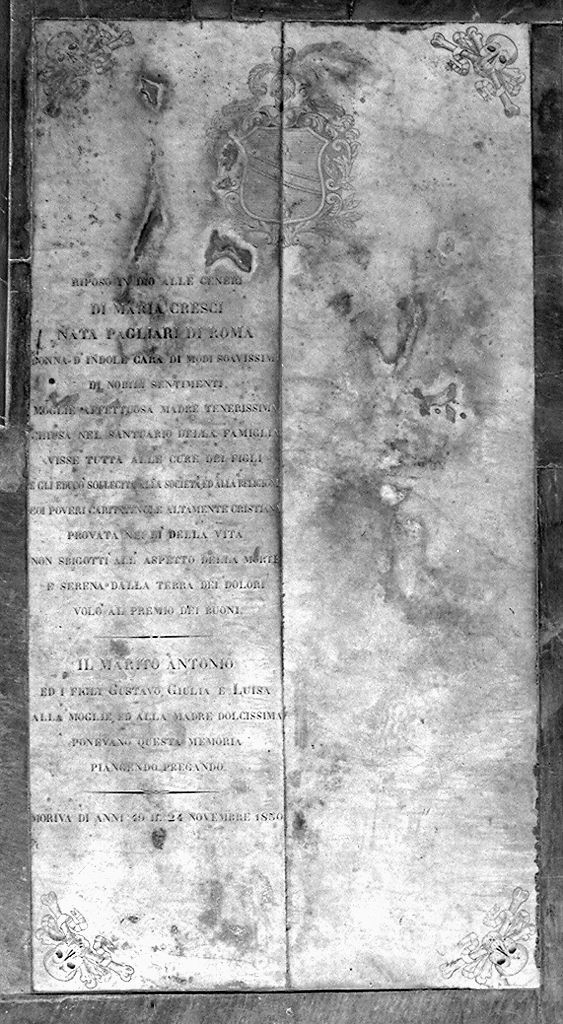 RIPOSO IN DIO ALLE CENERI
DI MARIA CRESCI
NATA PAGLIARI DI ROMA
DONNA D'INDOLE CARA DI MODI SOAVISSIMI
DI NOBILI SENTIMENTI
MOGLIE AFFETTUOSA MADRE TENERISSIMA
CHIUSA NEL SANTUARIO DELLA FAMIGLIA
VISSE TUTTA ALLE CURE DEI FIGLI
E GLI EDUCÒ SOLLECITA ALLA SOCIETÀ ED ALLA RELIGIONE
COI POVERI CARITATEVOLE ALTAMENTE CRISTIANA
PROVATA NEI DÌ DELLA VITA
NON SBIGOTTÌ ALL'ASPETTO DELLA MORTE
E SERENA DALLA TERRA DEI DOLORI
VOLÒ AL PREMIO DEI BUONI.
IL MARITO ANTONIO
ED I FIGLI GUSTAVO, GIULIA E LUISA
ALLA MOGLIE ED ALLA MADRE DOLCISSIMA
PONEVANO QUESTA MEMORIA
PIANGENDO PREGANDO.
MORIVA DI ANNI 49 IL 24 NOVEMBRE 1850